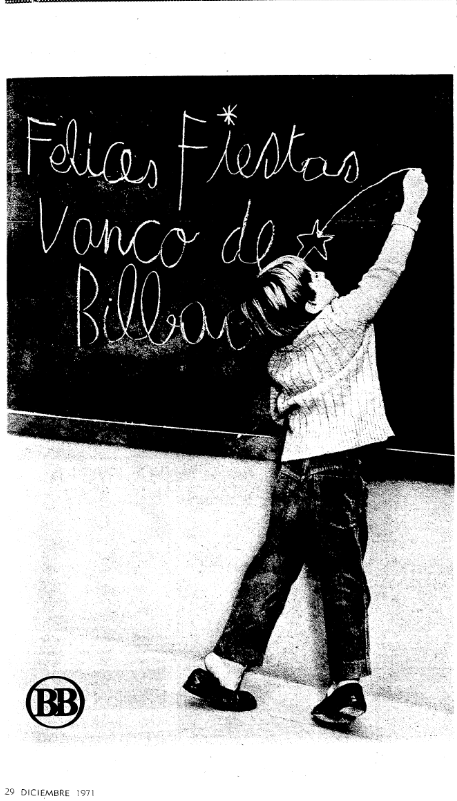 Felices Fiestas
Vanco de
Bilbao
BB
29 DICIEMBRE 1971